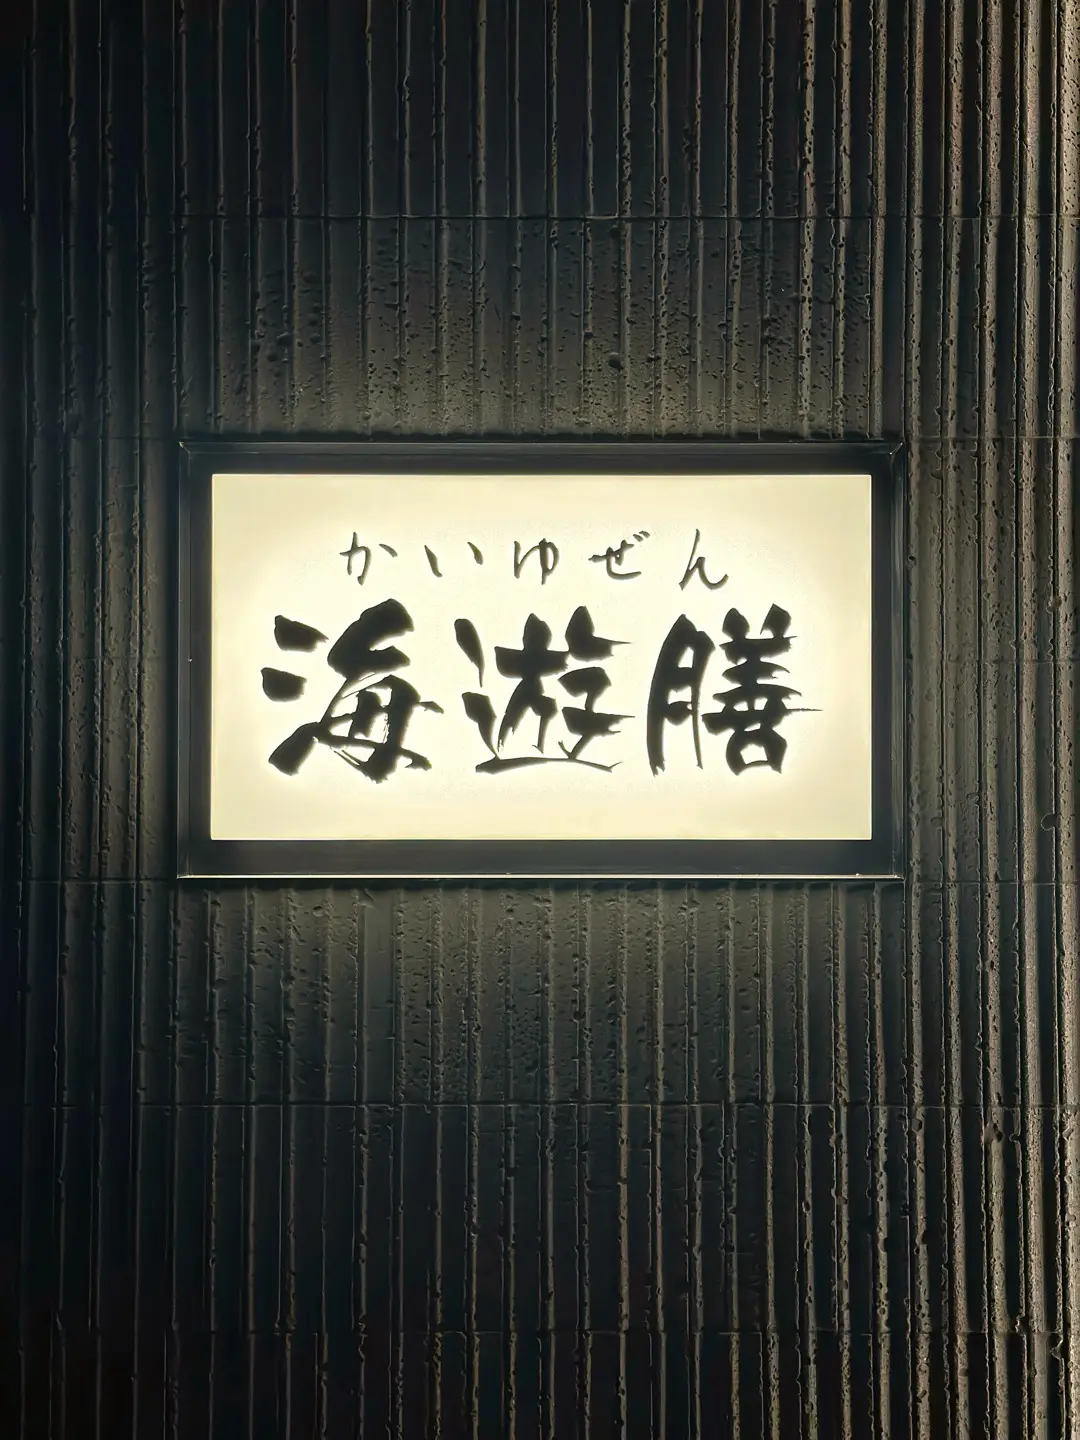 かいゆぜん
海遊膳